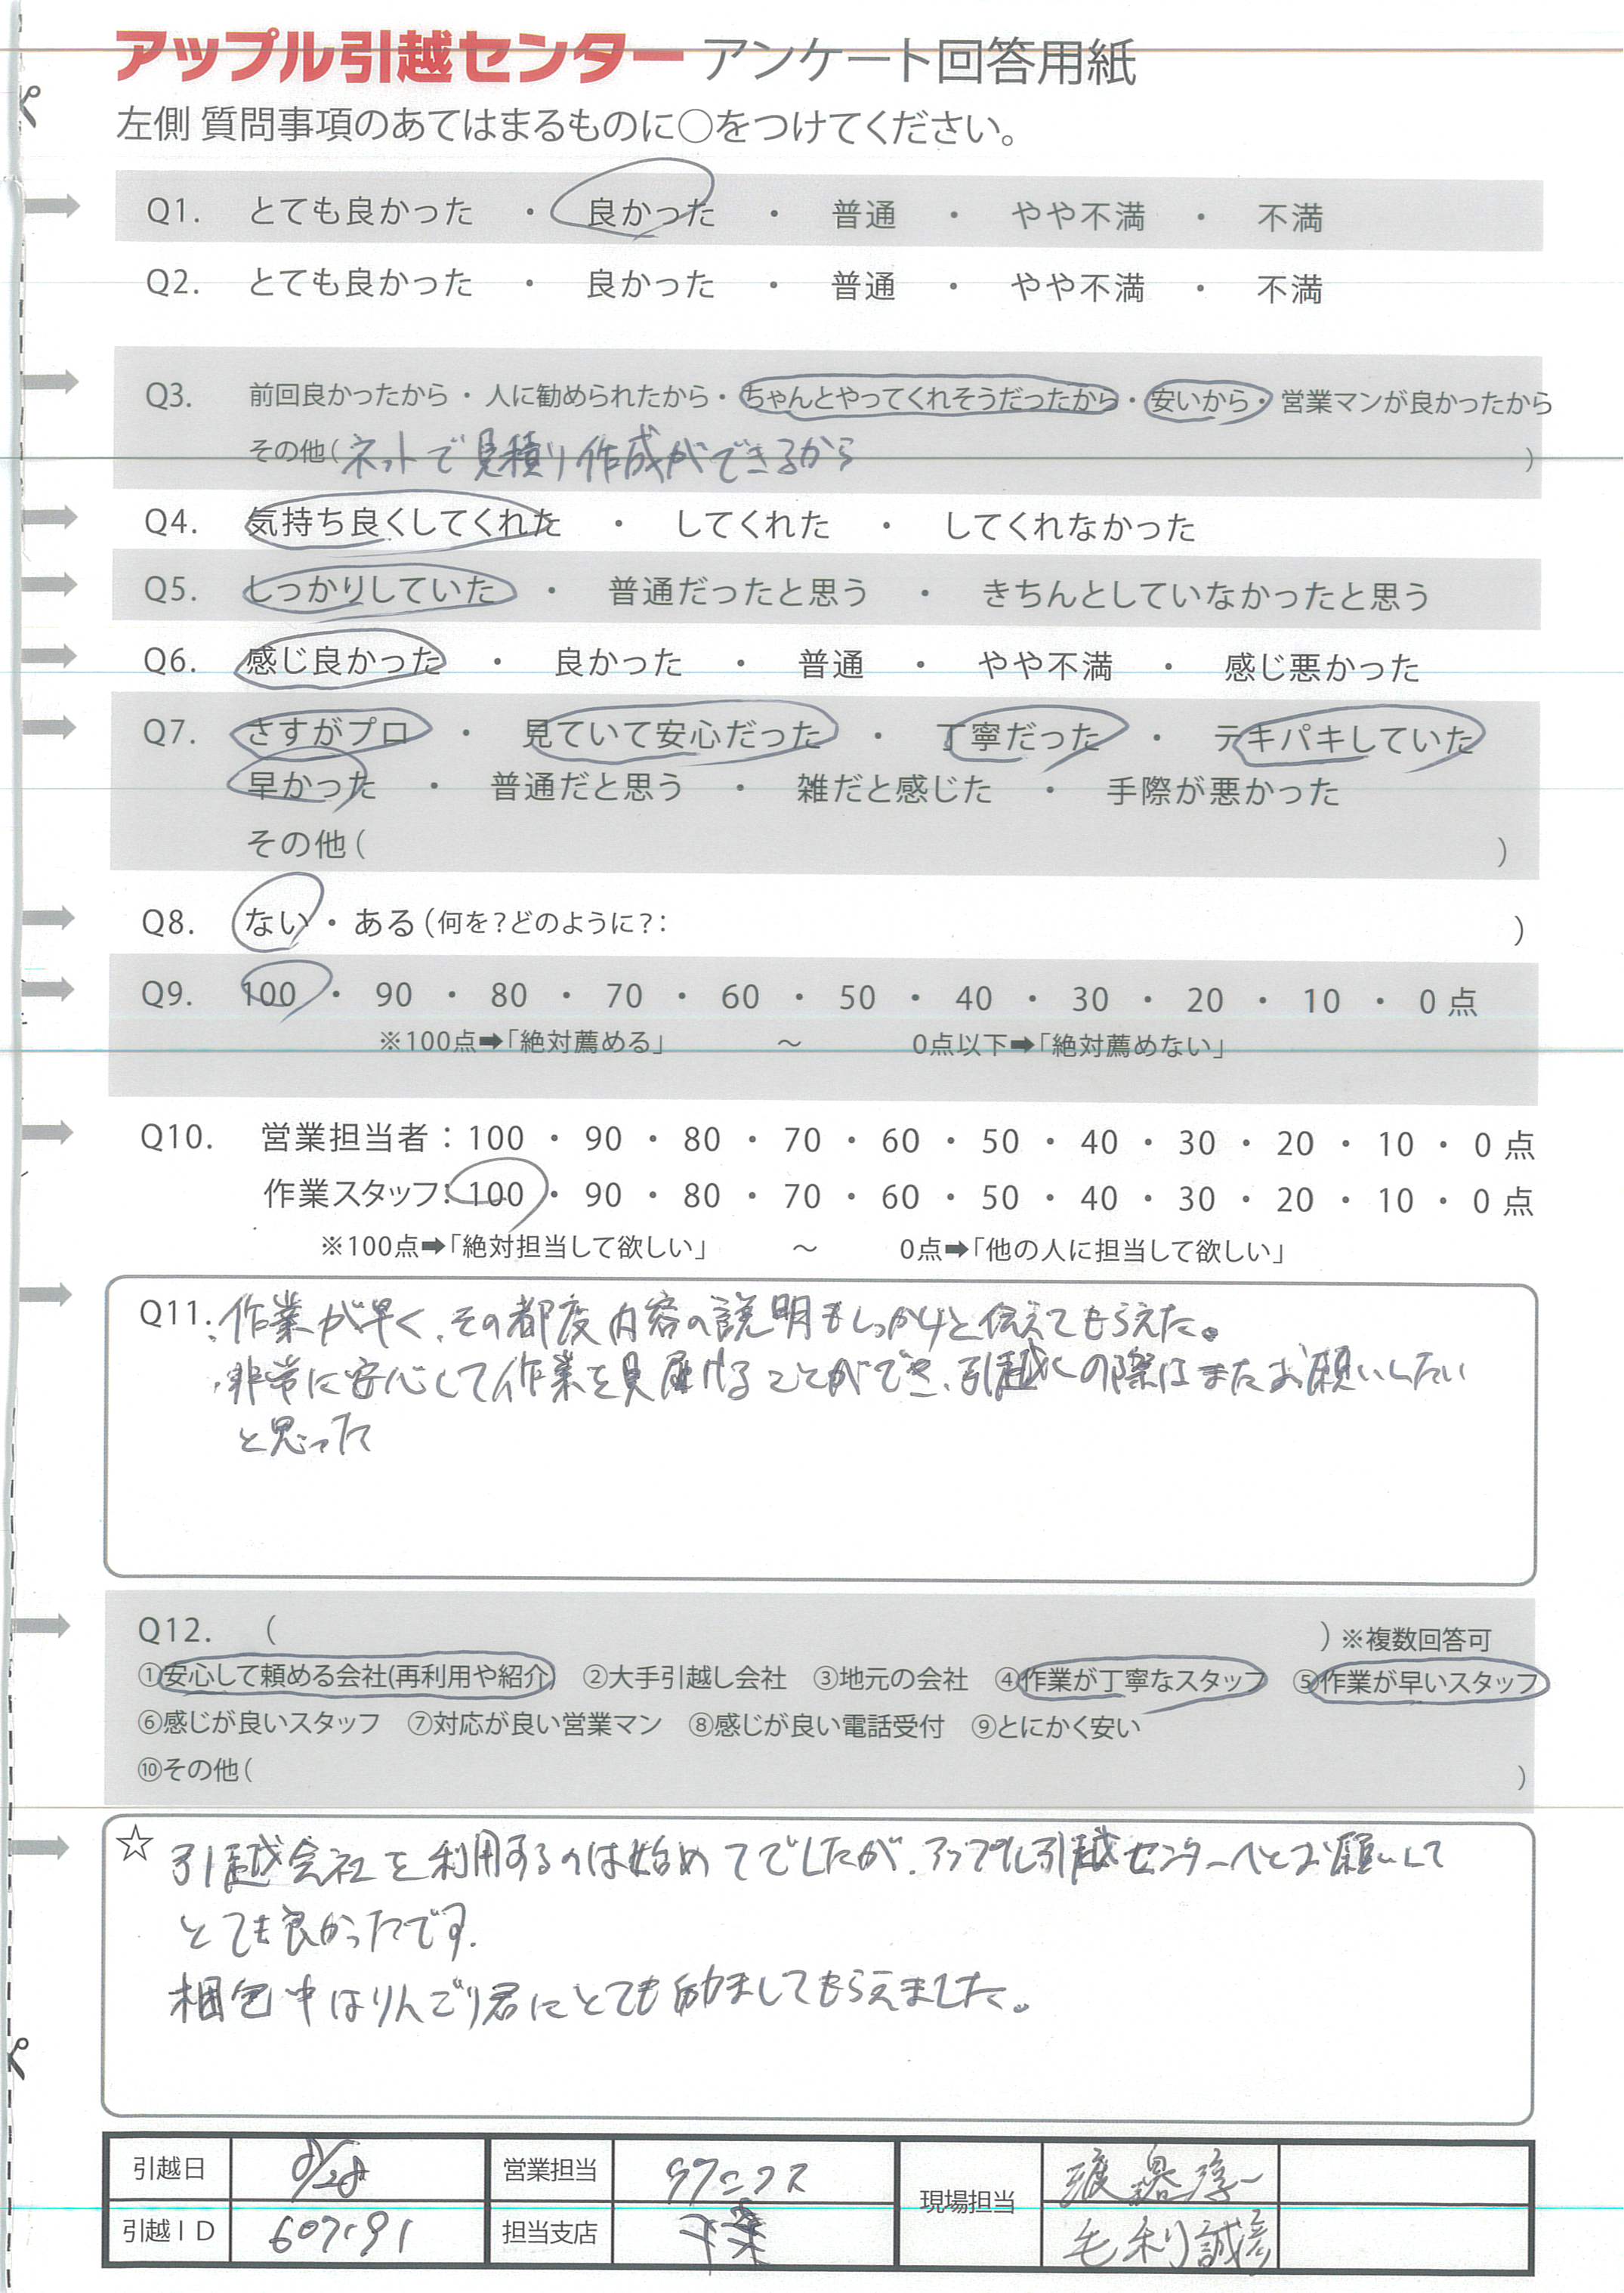 アップル引越センター アンケート回答用紙
左側 質問事項のあてはまるものに○をつけてください。
Q1. とても良かった ・ 良かった ・ 普通 ・ やや不満 ・ 不満
Q2. とても良かった ・ 良かった ・ 普通 ・ やや不満 ・ 不満
Q3. 前回良かったから・人に勧められたから・ちゃんとやってくれそうだったから・安いから・営業マンが良かったから
その他(ネットで見積り作成ができるから)
Q4. 気持ち良くしてくれた ・ してくれた ・ してくれなかった
Q5. しっかりしていた ・ 普通だったと思う ・ きちんとしていなかったと思う
Q6. 感じ良かった ・ 良かった ・ 普通 ・ やや不満 ・ 感じ悪かった
Q7. さすがプロ ・ 見ていて安心だった ・ 丁寧だった ・ テキパキしていた
早かった ・ 普通だと思う ・ 雑だと感じた ・ 手際が悪かった
その他( )
Q8. ない・ある(何を?どのように?: )
Q9. 100 ・ 90 ・ 80 ・ 70 ・ 60 ・ 50 ・ 40 ・ 30 ・ 20 ・ 10 ・ 0 点
※100点➡「絶対薦める」 ～ 0点以下➡「絶対薦めない」
Q10. 営業担当者:100 ・ 90 ・ 80 ・ 70 ・ 60 ・ 50 ・ 40 ・ 30 ・ 20 ・ 10 ・ 0 点
作業スタッフ:100 ・ 90 ・ 80 ・ 70 ・ 60 ・ 50 ・ 40 ・ 30 ・ 20 ・ 10 ・ 0 点
※100点➡「絶対担当して欲しい」 ～ 0点➡「他の人に担当して欲しい」
Q11. ・作業が早く、その都度内容の説明もしっかりと伝えてもらえた。
・非常に安心して作業を見届けることができ、引越しの際はまたお願いしたい
と思った
Q12. ( )※複数回答可
①安心して頼める会社(再利用や紹介) ②大手引越し会社 ③地元の会社 ④作業が丁寧なスタッフ ⑤作業が早いスタッフ
⑥感じが良いスタッフ ⑦対応が良い営業マン ⑧感じが良い電話受付 ⑨とにかく安い
⑩その他( )
☆ 引越会社を利用するのは始めてでしたが、アップル引越センターへとお願いして
とても良かったです。
梱包中はりんごり君にとても励ましてもらえました。
引越日 8/28 営業担当 ラクニコス 現場担当 渡邉淳一
引越ID 607191 担当支店 千葉 毛利誠彦